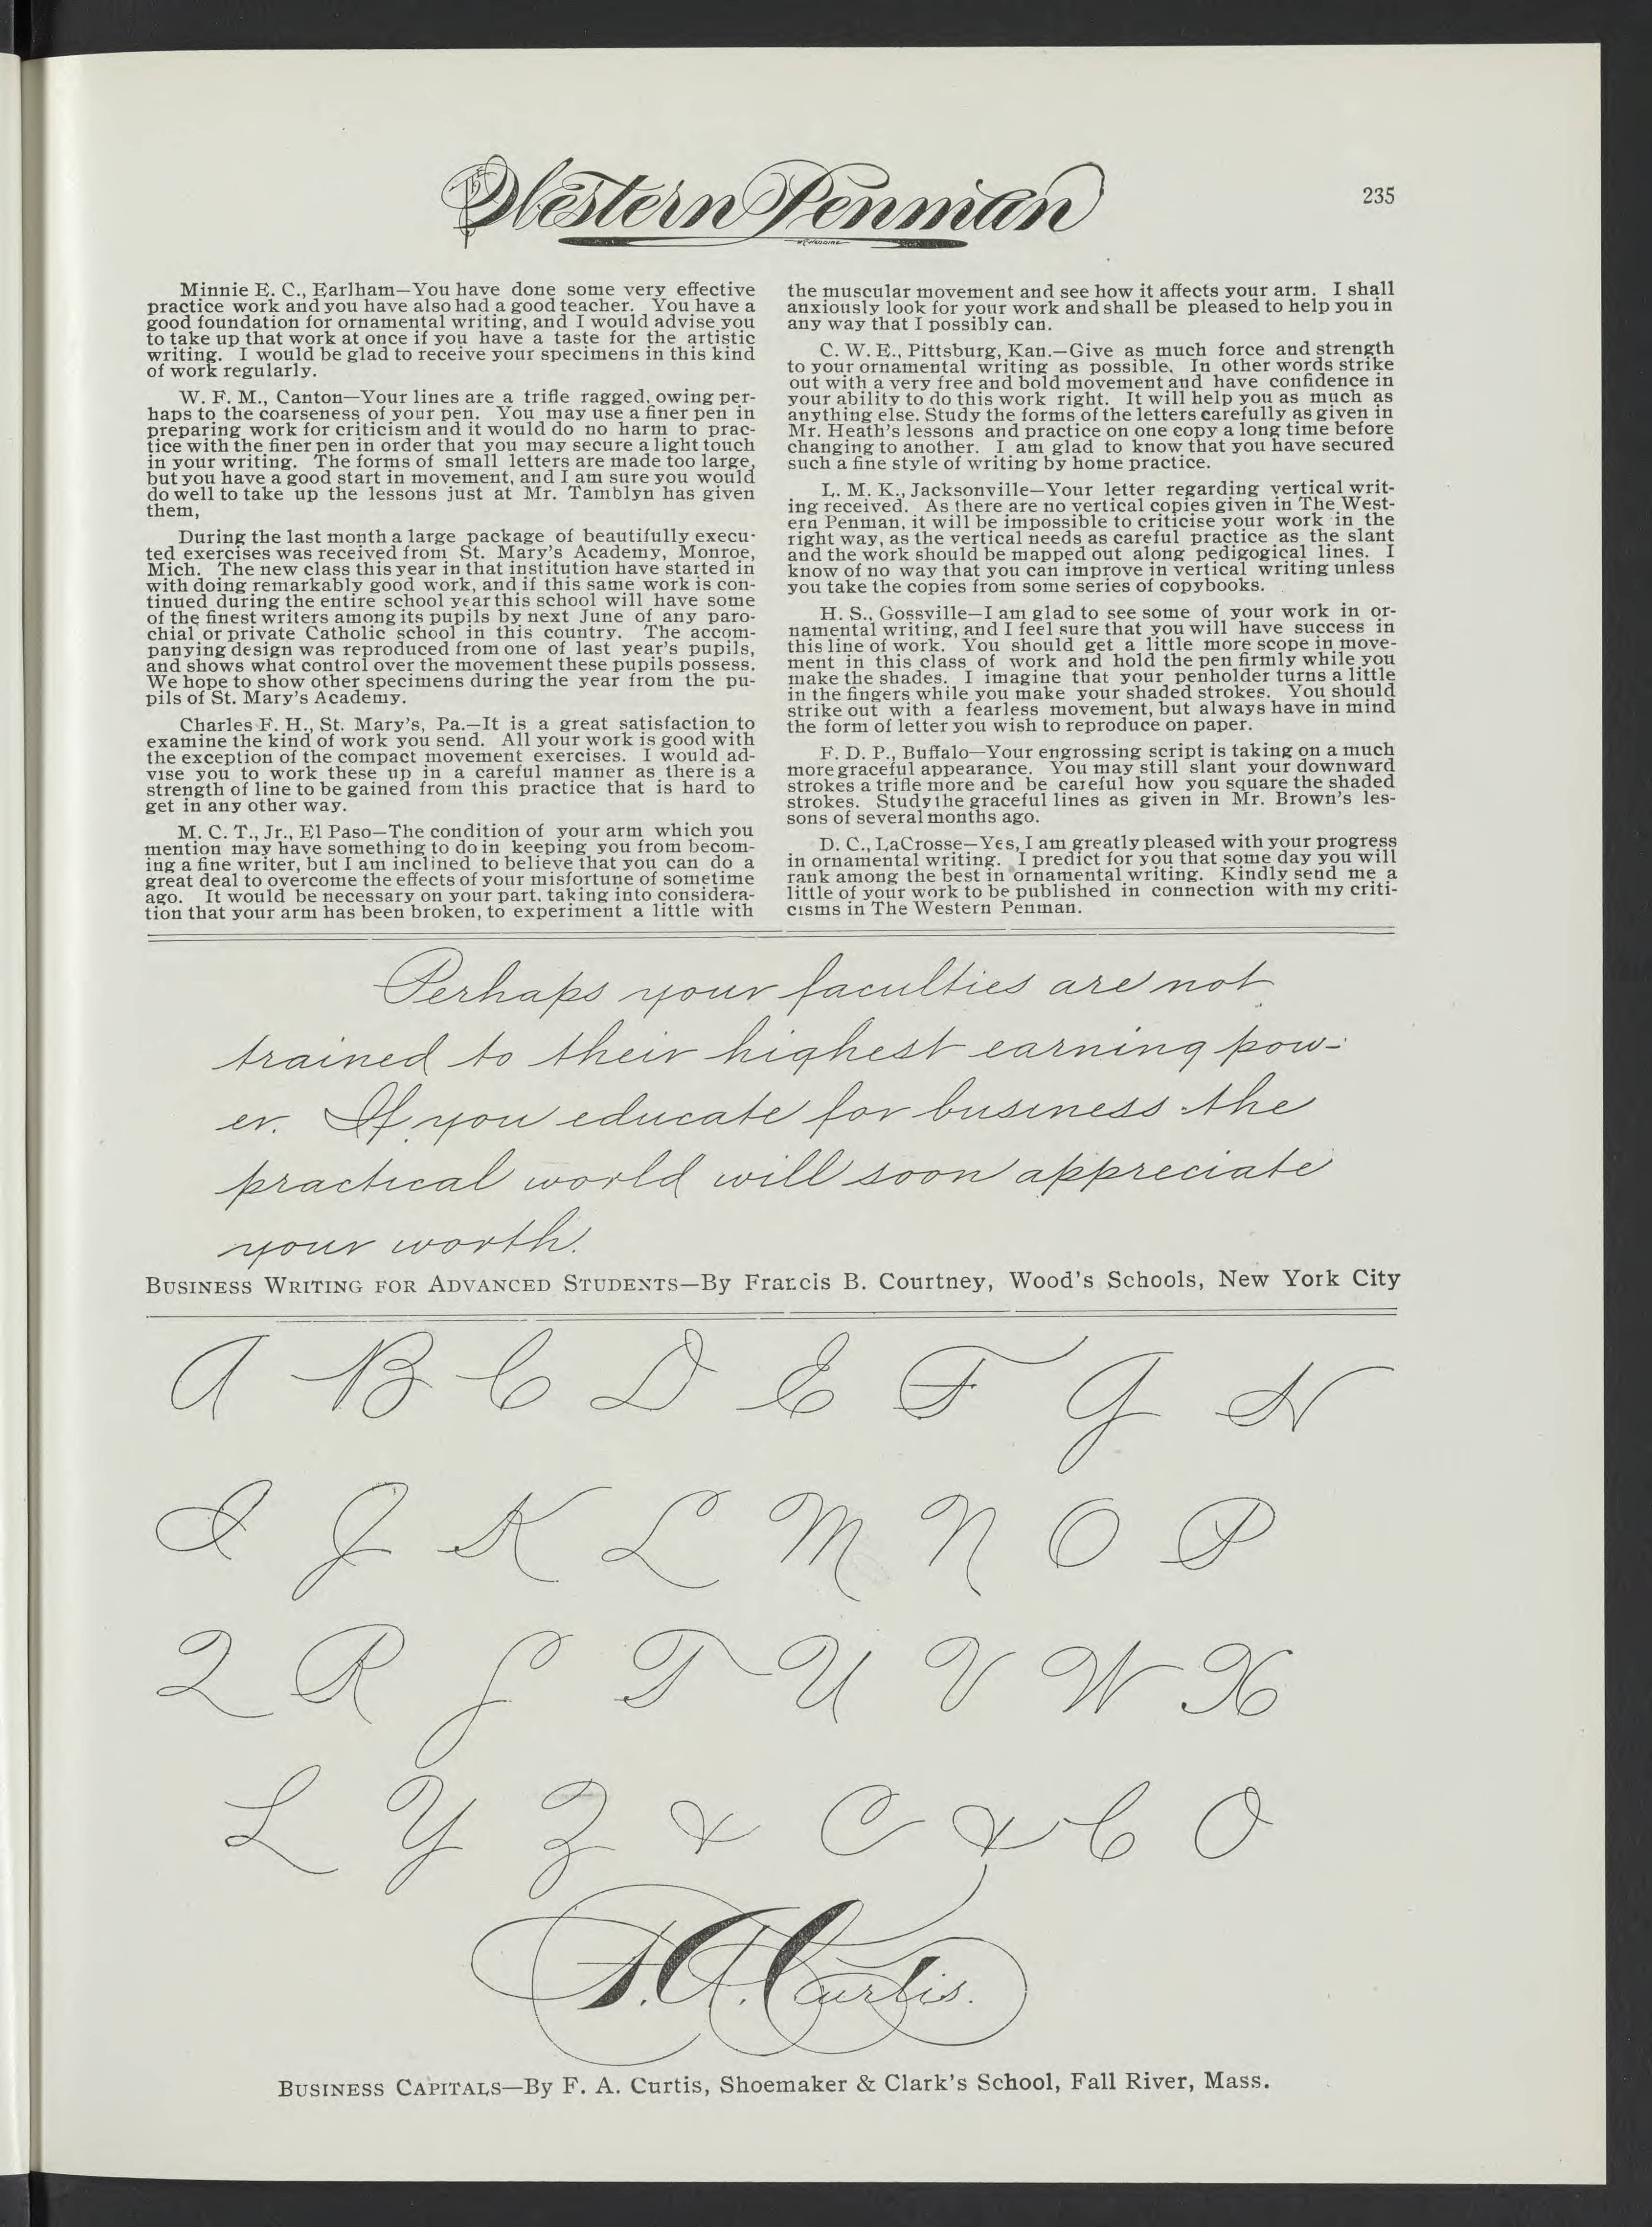 The Western Penman
235
Minnie E. C., Earlham—You have done some very effective
practice work and you have also had a good teacher. You have a
good foundation for ornamental writing, and I would advise you
to take up that work at once if you have a taste for the artistic
writing. I would be glad to receive your specimens in this kind
of work regularly.
W. F. M., Canton—Your lines are a trifle ragged, owing per-
haps to the coarseness of your pen. You may use a finer pen in
preparing work for criticism and it would do no harm to prac-
tice with the finer pen in order that you may secure a light touch
in your writing. The forms of small letters are made too large,
but you have a good start in movement, and I am sure you would
do well to take up the lessons just at Mr. Tamblyn has given
them,
During the last month a large package of beautifully execu-
ted exercises was received from St. Mary's Academy, Monroe,
Mich. The new class this year in that institution have started in
with doing remarkably good work, and if this same work is con-
tinued during the entire school year this school will have some
of the finest writers among its pupils by next June of any paro-
chial or private Catholic school in this country. The accom-
panying design was reproduced from one of last year's pupils,
and shows what control over the movement these pupils possess.
We hope to show other specimens during the year from the pu-
pils of St. Mary's Academy.
Charles F. H., St. Mary's, Pa.—It is a great satisfaction to
examine the kind of work you send. All your work is good with
the exception of the compact movement exercises. I would ad-
vise you to work these up in a careful manner as there is a
strength of line to be gained from this practice that is hard to
get in any other way.
M. C. T., Jr., El Paso—The condition of your arm which you
mention may have something to do in keeping you from becom-
ing a fine writer, but I am inclined to believe that you can do a
great deal to overcome the effects of your misfortune of sometime
ago. It would be necessary on your part, taking into considera-
tion that your arm has been broken, to experiment a little with
the muscular movement and see how it affects your arm. I shall
anxiously look for your work and shall be pleased to help you in
any way that I possibly can.
C. W. E., Pittsburg, Kan.—Give as much force and strength
to your ornamental writing as possible. In other words strike
out with a very free and bold movement and have confidence in
your ability to do this work right. It will help you as much as
anything else. Study the forms of the letters carefully as given in
Mr. Heath's lessons and practice on one copy a long time before
changing to another. I am glad to know that you have secured
such a fine style of writing by home practice.
L. M. K., Jacksonville—Your letter regarding vertical writ-
ing received. As there are no vertical copies given in The West-
ern Penman, it will be impossible to criticise your work in the
right way, as the vertical needs as careful practice as the slant
and the work should be mapped out along pedigogical lines. I
know of no way that you can improve in vertical writing unless
you take the copies from some series of copybooks.
H. S., Gossville—I am glad to see some of your work in or-
namental writing, and I feel sure that you will have success in
this line of work. You should get a little more scope in move-
ment in this class of work and hold the pen firmly while you
make the shades. I imagine that your penholder turns a little
in the fingers while you make your shaded strokes. You should
strike out with a fearless movement, but always have in mind
the form of letter you wish to reproduce on paper.
F. D. P., Buffalo—Your engrossing script is taking on a much
more graceful appearance. You may still slant your downward
strokes a trifle more and be careful how you square the shaded
strokes. Study the graceful lines as given in Mr. Brown's les-
sons of several months ago.
D. C., LaCrosse—Yes, I am greatly pleased with your progress
in ornamental writing. I predict for you that some day you will
rank among the best in ornamental writing. Kindly send me a
little of your work to be published in connection with my criti-
cisms in The Western Penman.
Perhaps your faculties are not
trained to their highest earning pow-
er. If you educate for business the
practical world will soon appreciate
your worth.
BUSINESS WRITING FOR ADVANCED STUDENTS—By Francis B. Courtney, Wood's Schools, New York City
A B C D E F G H
I J K L M N O P
Q R S T U V W X
L Y Z & C & C O
F. A. Curtis.
BUSINESS CAPITALS—By F. A. Curtis, Shoemaker & Clark's School, Fall River, Mass.